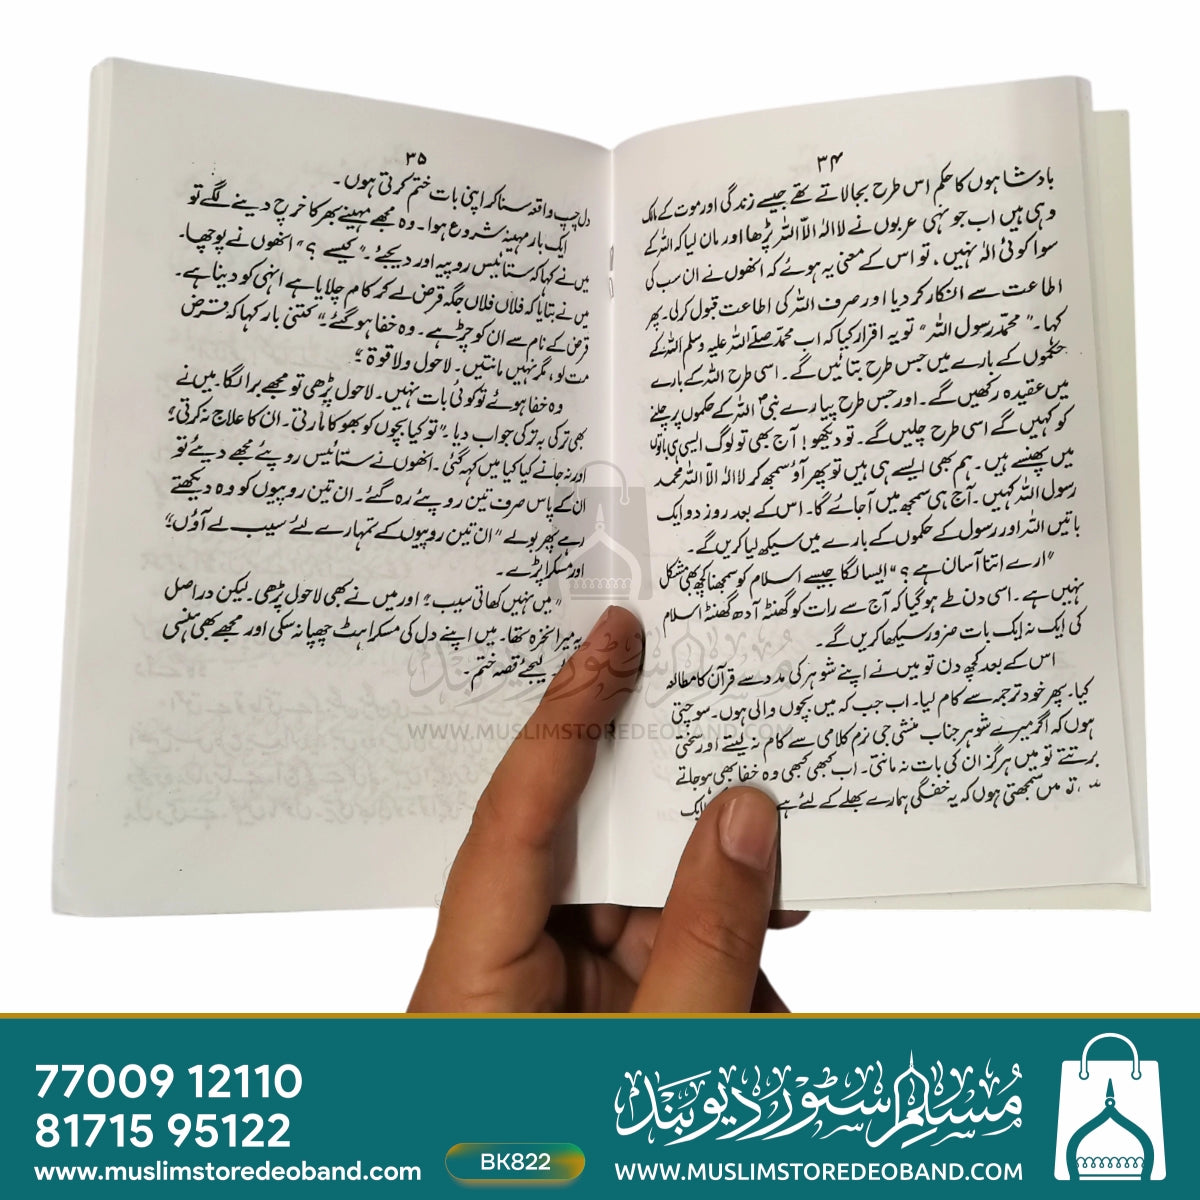 ۳۴
بادشاہوں کا حکم اس طرح بجا لاتے تھے جیسے زندگی اور موت کے مالک
وہی ہیں اب جو نہی عربوں نے لا الہ الا اللہ پڑھا اور مان لیا کہ اللہ کے
سوا کوئی الٰہ نہیں، تو اس کے معنی یہ ہوئے کہ انھوں نے ان سب کی
اطاعت سے انکار کر دیا اور صرف اللہ کی اطاعت قبول کرلی۔ پھر
کہا۔ "محمد رسول اللہ" تو یہ اقرار کیا کہ اب محمد صلے اللہ علیہ وسلم اللہ کے
حکموں کے بارے میں جس طرح بتائیں گے۔ اسی طرح اللہ کے بارے
میں عقیدہ رکھیں گے۔ اور جس طرح پیارے نبیؐ اللہ کے حکموں پر چلنے
کو کہیں گے اسی طرح چلیں گے۔ تو دیکھو! آج بھی تو لوگ ایسی ہی باتوں
میں پھنسے ہیں۔ ہم بھی ایسے ہی ہیں تو پھر آؤ سمجھ کر لا الہ الا اللہ محمد
رسول اللہ کہیں۔ آج ہی سمجھ میں آجائے گا۔ اس کے بعد روز دو ایک
باتیں اللہ اور رسول کے حکموں کے بارے میں سیکھ لیا کریں گے۔
"ارے اتنا آسان ہے؟" ایسا لگا جیسے اسلام کو سمجھنا کچھ بھی مشکل
نہیں ہے۔ اسی دن طے ہوگیا کہ آج سے رات کو گھنٹہ آدھ گھنٹہ اسلام
کی ایک نہ ایک بات ضرور سیکھا کریں گے۔
اس کے بعد کچھ دن تو میں نے اپنے شوہر کی مدد سے قرآن کا مطالعہ
کیا۔ پھر خود ترجمہ سے کام لیا۔ اب جب کہ میں بچوں والی ہوں۔ سوچتی
ہوں کہ اگر میرے شوہر جناب منشی جی نرم کلامی سے کام نہ لیتے اور سختی
برتتے تو میں ہرگز ان کی بات نہ مانتی۔ اب کبھی کبھی وہ خفا بھی ہو جاتے
تو میں سمجھتی ہوں کہ یہ خفگی ہمارے بھلے کے لئے ہے ایک
۳۵
دل چسپ واقعہ سنا کر اپنی بات ختم کرتی ہوں۔
ایک بار مہینہ شروع ہوا۔ وہ مجھے مہینے بھر کا خرچ دینے لگے تو
میں نے کہا کہ ستائیس روپیہ اور دیجئے۔ "کیسے؟" انھوں نے پوچھا۔
میں نے بتایا کہ فلاں فلاں جگہ قرض لے کر کام چلایا ہے انہی کو دینا ہے۔
قرض کے نام سے ان کو چڑ ہے۔ وہ خفا ہوگئے۔ "کتنی بار کہا کہ قرض
مت لو، مگر نہیں مانتیں۔ لاحول ولا قوۃ"
وہ خفا ہوئے تو کوئی بات نہیں۔ لاحول پڑھی تو مجھے برا لگا۔ میں نے
بھی ترکی بہ ترکی جواب دیا۔ "تو کیا بچوں کو بھوکا مارتی۔ ان کا علاج نہ کرتی"
اور نہ جانے کیا کیا میں کہہ گئی۔ انھوں نے ستائیس روپئے مجھے دیئے تو
ان کے پاس صرف تین روپئے رہ گئے۔ ان تین روپیوں کو وہ دیکھتے
رہے پھر بولے "ان تین روپیوں کے تمہارے لئے سیب لے آؤں"
اور مسکرا پڑے۔
"میں نہیں کھاتی سیب" اور میں نے بھی لاحول پڑھی۔ لیکن دراصل
یہ میرا نخرہ تھا۔ میں اپنے دل کی مسکراہٹ چھپا نہ سکی اور مجھے بھی ہنسی
لیجئے قصہ ختم۔
مسلم سٹور دیوبند
WWW.MUSLIMSTOREDEOBAND.COM
77009 12110
81715 95122
www.muslimstoredeoband.com
BK822
مسلم سٹور دیوبند
WWW.MUSLIMSTOREDEOBAND.COM